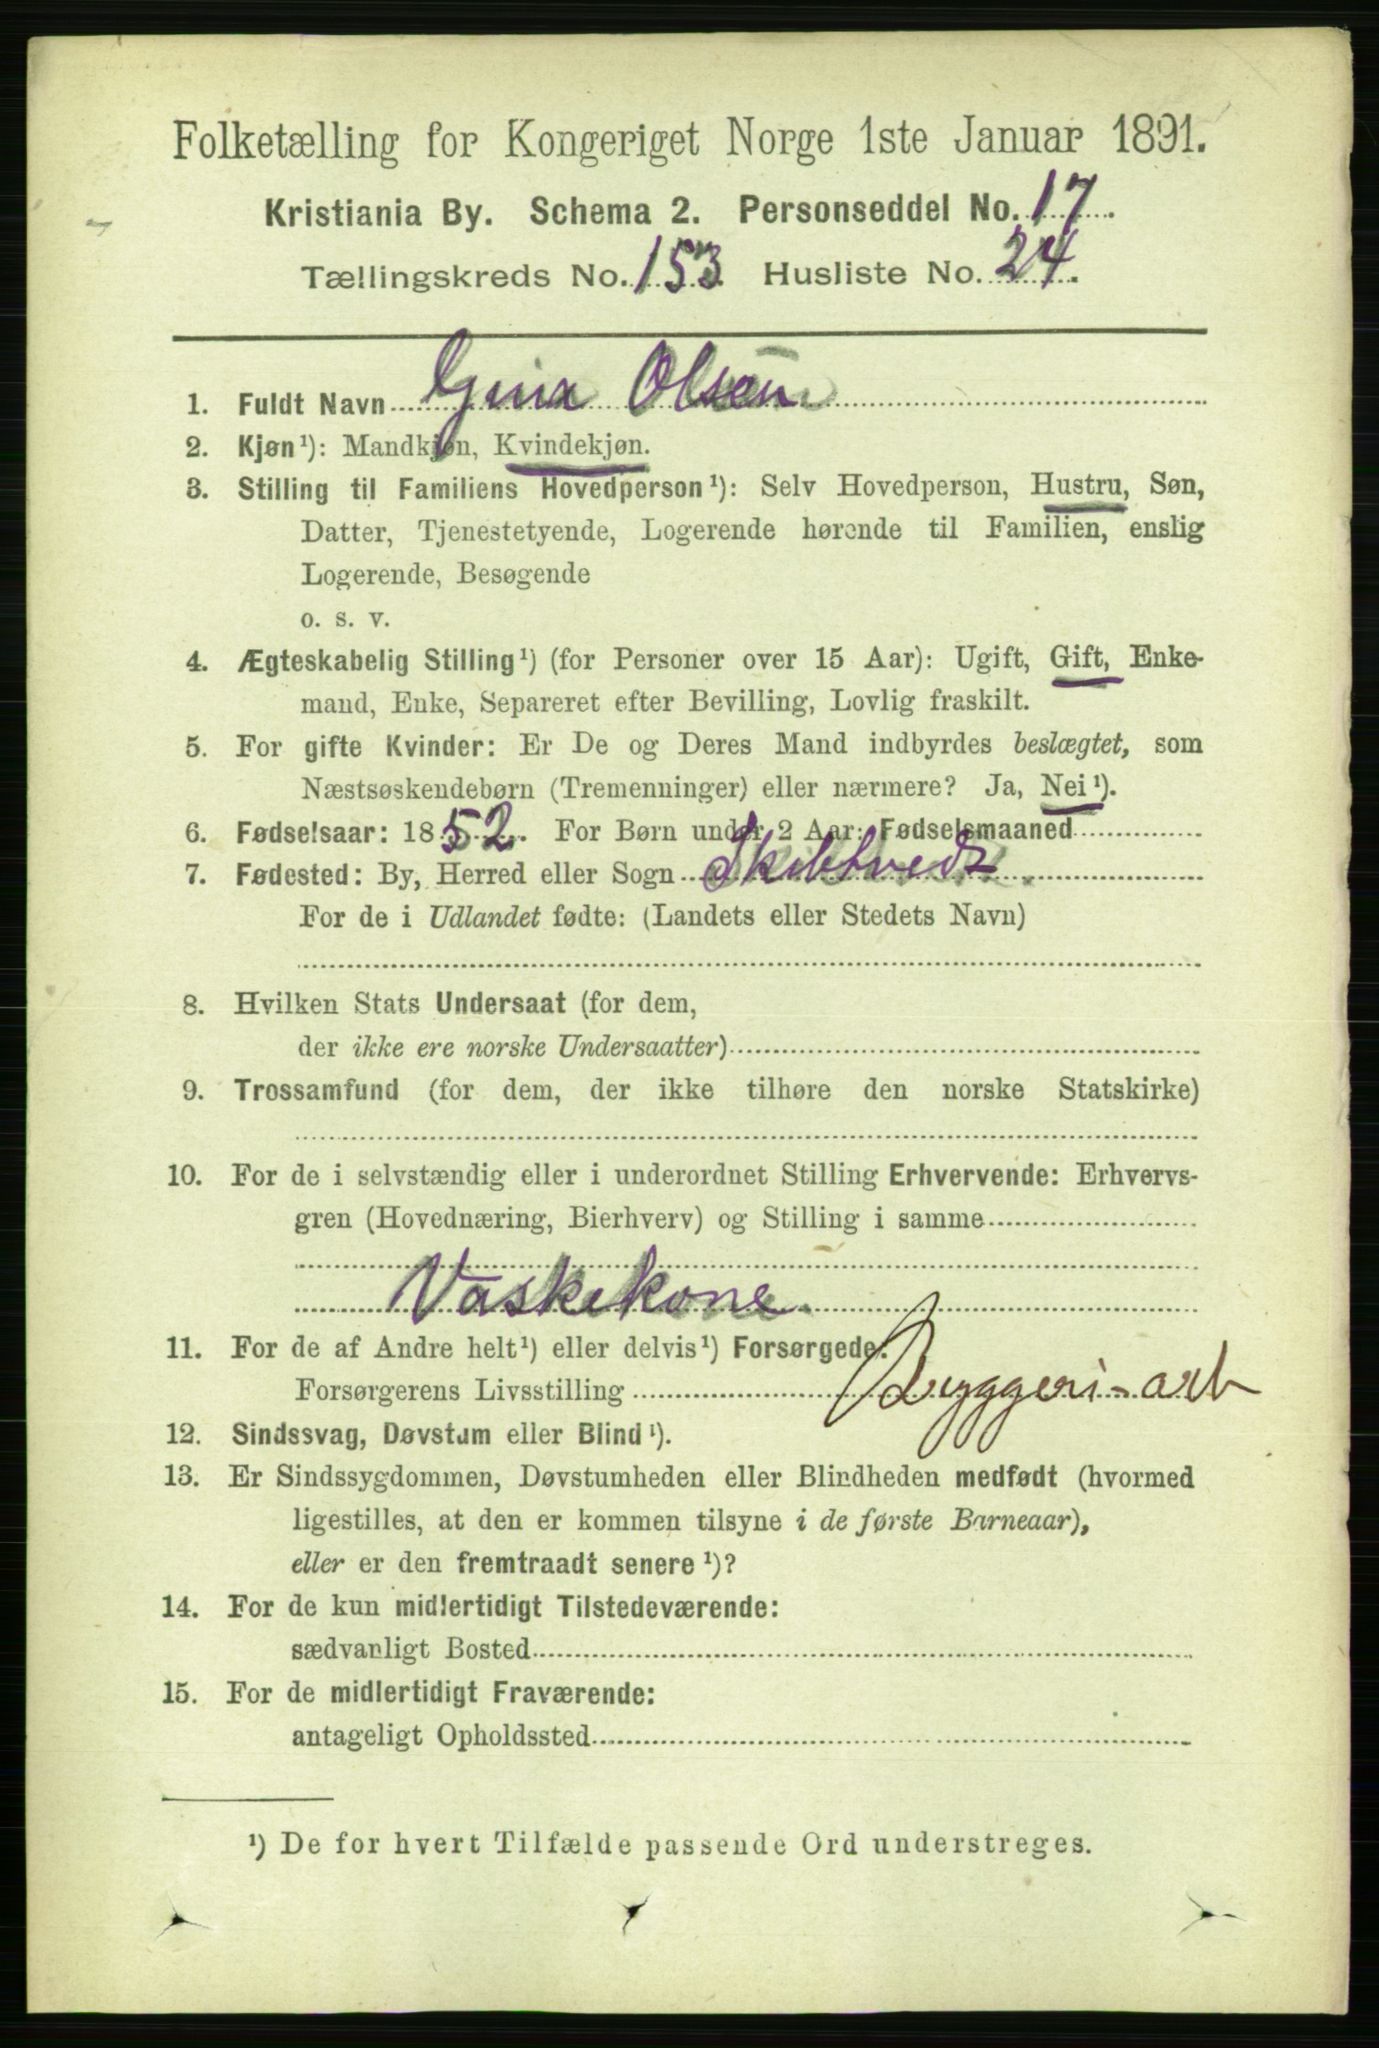 Folketælling for Kongeriget Norge 1ste Januar 1891.
Kristiania By. Schema 2. Personseddel No. 17.
Tællingskreds No. 153. Husliste No. 24.
1. Fuldt Navn Gina Olsen
2. Kjøn¹): Mandkjøn, Kvindekjøn.
3. Stilling til Familiens Hovedperson¹): Selv Hovedperson, Hustru, Søn,
Datter, Tjenestetyende, Logerende hørende til Familien, enslig
Logerende, Besøgende
o. s. v.
4. Ægteskabelig Stilling¹) (for Personer over 15 Aar): Ugift, Gift, Enke-
mand, Enke, Separeret efter Bevilling, Lovlig fraskilt.
5. For gifte Kvinder: Er De og Deres Mand indbyrdes beslægtet, som
Næstsøskendebørn (Tremenninger) eller nærmere? Ja, Nei¹).
6. Fødselsaar: 1852. For Børn under 2 Aar: Fødselsmaaned
7. Fødested: By, Herred eller Sogn Skibtvedt
For de i Udlandet fødte: (Landets eller Stedets Navn)
8. Hvilken Stats Undersaat (for dem,
der ikke ere norske Undersaatter)
9. Trossamfund (for dem, der ikke tilhøre den norske Statskirke)
10. For de i selvstændig eller i underordnet Stilling Erhvervende: Erhvervs-
gren (Hovednæring, Bierhverv) og Stilling i samme
Vaskekone
11. For de af Andre helt¹) eller delvis¹) Forsørgede:
Forsørgerens Livsstilling Bryggeri-arb
12. Sindssvag, Døvstum eller Blind¹).
13. Er Sindssygdommen, Døvstumheden eller Blindheden medfødt (hvormed
ligestilles, at den er kommen tilsyne i de første Barneaar),
eller er den fremtraadt senere¹)?
14. For de kun midlertidigt Tilstedeværende:
sædvanligt Bosted
15. For de midlertidigt Fraværende:
antageligt Opholdssted
¹) De for hvert Tilfælde passende Ord understreges.